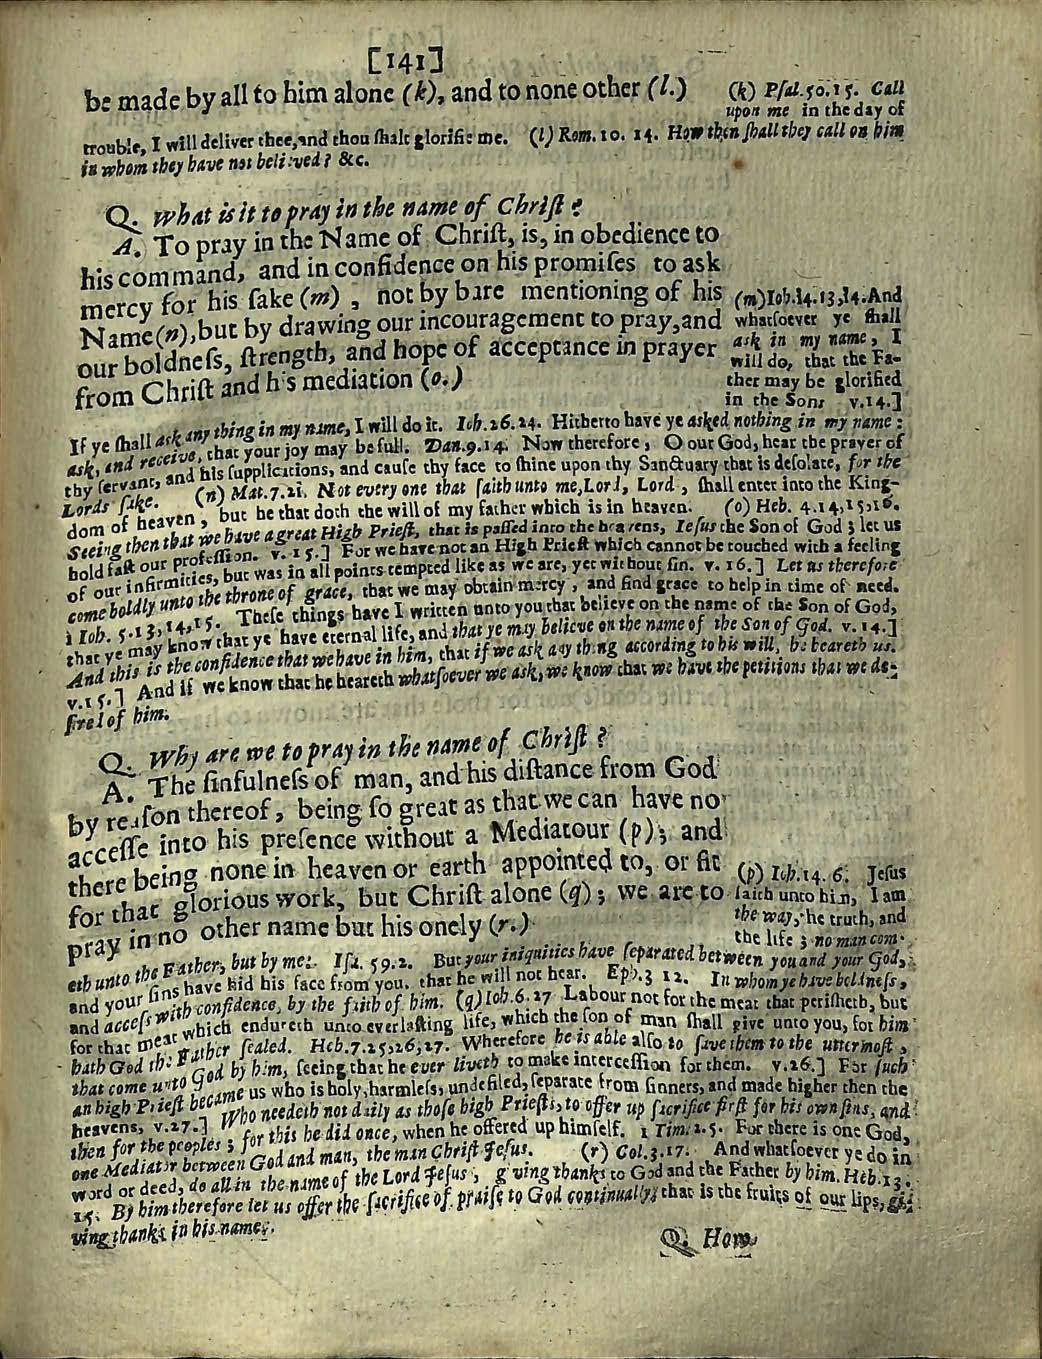 [141]
be made by all to him alone (k), and to none other (l.)
(k) Pſal.50.15. Call
upon me in the day of
trouble, I will deliver thee,and thou ſhalt glorifie me. (l) Rom. 10. 14. How then ſhall they call on him
in whom they have not believed? &c.
Q. What is it to pray in the name of Chriſt?
A. To pray in the Name of Chriſt, is, in obedience to
his command, and in confidence on his promiſes to ask
mercy for his ſake (m) , not by bare mentioning of his
Name(n),but by drawing our incouragement to pray,and
our boldneſs, ſtrength, and hope of acceptance in prayer
from Chriſt and his mediation (o.)
(m)Ioh.14.13,14.And
whatſoever ye ſhall
ask in my name, I
will do, that the Fa-
ther may be glorified
in the Sons v.14.]
If ye ſhall ask any thing in my name, I will do it. Ioh.16.24. Hitherto have ye asked nothing in my name:
ask, and receive, that your joy may be full. Dan.9.14. Now therefore, O our God, hear the prayer of
thy ſervant, and his ſupplications, and cauſe thy face to ſhine upon thy Sanctuary that is deſolate, for the
Lords ſake. (n) Mat.7.21. Not every one that ſaith unto me,Lord, Lord , ſhall enter into the King-
dom of heaven, but he that doth the will of my father which is in heaven. (o) Heb. 4.14,15,16.
Seeing then that we have a great High Prieſt, that is paſſed into the heavens, Ieſus the Son of God; let us
hold faſt our profeſſion. v.15.] For we have not an High Prieſt which cannot be touched with a feeling
of our infirmities, but was in all points tempted like as we are, yet without ſin. v. 16.] Let us therefore
come boldly unto the throne of grace, that we may obtain mercy , and find grace to help in time of need.
1 Ioh. 5.13,14,15. Theſe things have I written unto you,that believe on the name of the Son of God,
that ye may know that ye have eternal life, and that ye may believe on the name of the Son of God. v.14.]
And this is the confidence that we have in him, that if we ask any thing according to his will, he heareth us.
v.15.] And if we know that he heareth whatſoever we ask, we know that we have the petitions that we de-
ſired of him.
Q. Why are we to pray in the name of Chriſt?
A. The ſinfulneſs of man, and his diſtance from God
by reaſon thereof, being ſo great as that we can have no
acceſſe into his preſence without a Mediatour (p); and
there being none in heaven or earth appointed to, or fit
for that glorious work, but Chriſt alone (q); we are to
pray in no other name but his onely (r.)
(p) Ioh.14.6. Jeſus
ſaith unto him, I am
the way, the truth, and
the life; no man com-
eth unto the Father, but by me. Iſa. 59.2. But your iniquities have ſeparated between you and your God,
and your ſins have hid his face from you, that he will not hear. Eph.3 12. In whom ye have boldneſs,
and acceſs with confidence, by the faith of him. (q)Ioh.6.27 Labour not for the meat that periſheth, but
for that meat which endureth unto everlaſting life, which the ſon of man ſhall give unto you, for him
hath God the Father ſealed. Heb.7.25,26,27. Wherefore he is able alſo to ſave them to the uttermoſt,
that come unto God by him, ſeeing that he ever liveth to make interceſſion for them. v.26.] For ſuch
an high Prieſt became us who is holy,harmleſs, undefiled,ſeparate from ſinners, and made higher then the
heavens, v.27.] Who needeth not daily as thoſe high Prieſts, to offer up ſacrifice firſt for his own ſins, and
then for the peoples; for this he did once, when he offered up himſelf. 1 Tim.2.5. For there is one God,
one Mediator between God and man, the man Chriſt Jeſus. (r) Col.3.17. And whatſoever ye do in
word or deed, do all in the name of the Lord Jeſus, giving thanks to God and the Father by him. Heb.13.
15. By him therefore let us offer the ſacrifice of praiſe to God continually, that is the fruits of our lips, gi-
ving thanks in his name.
Q. How